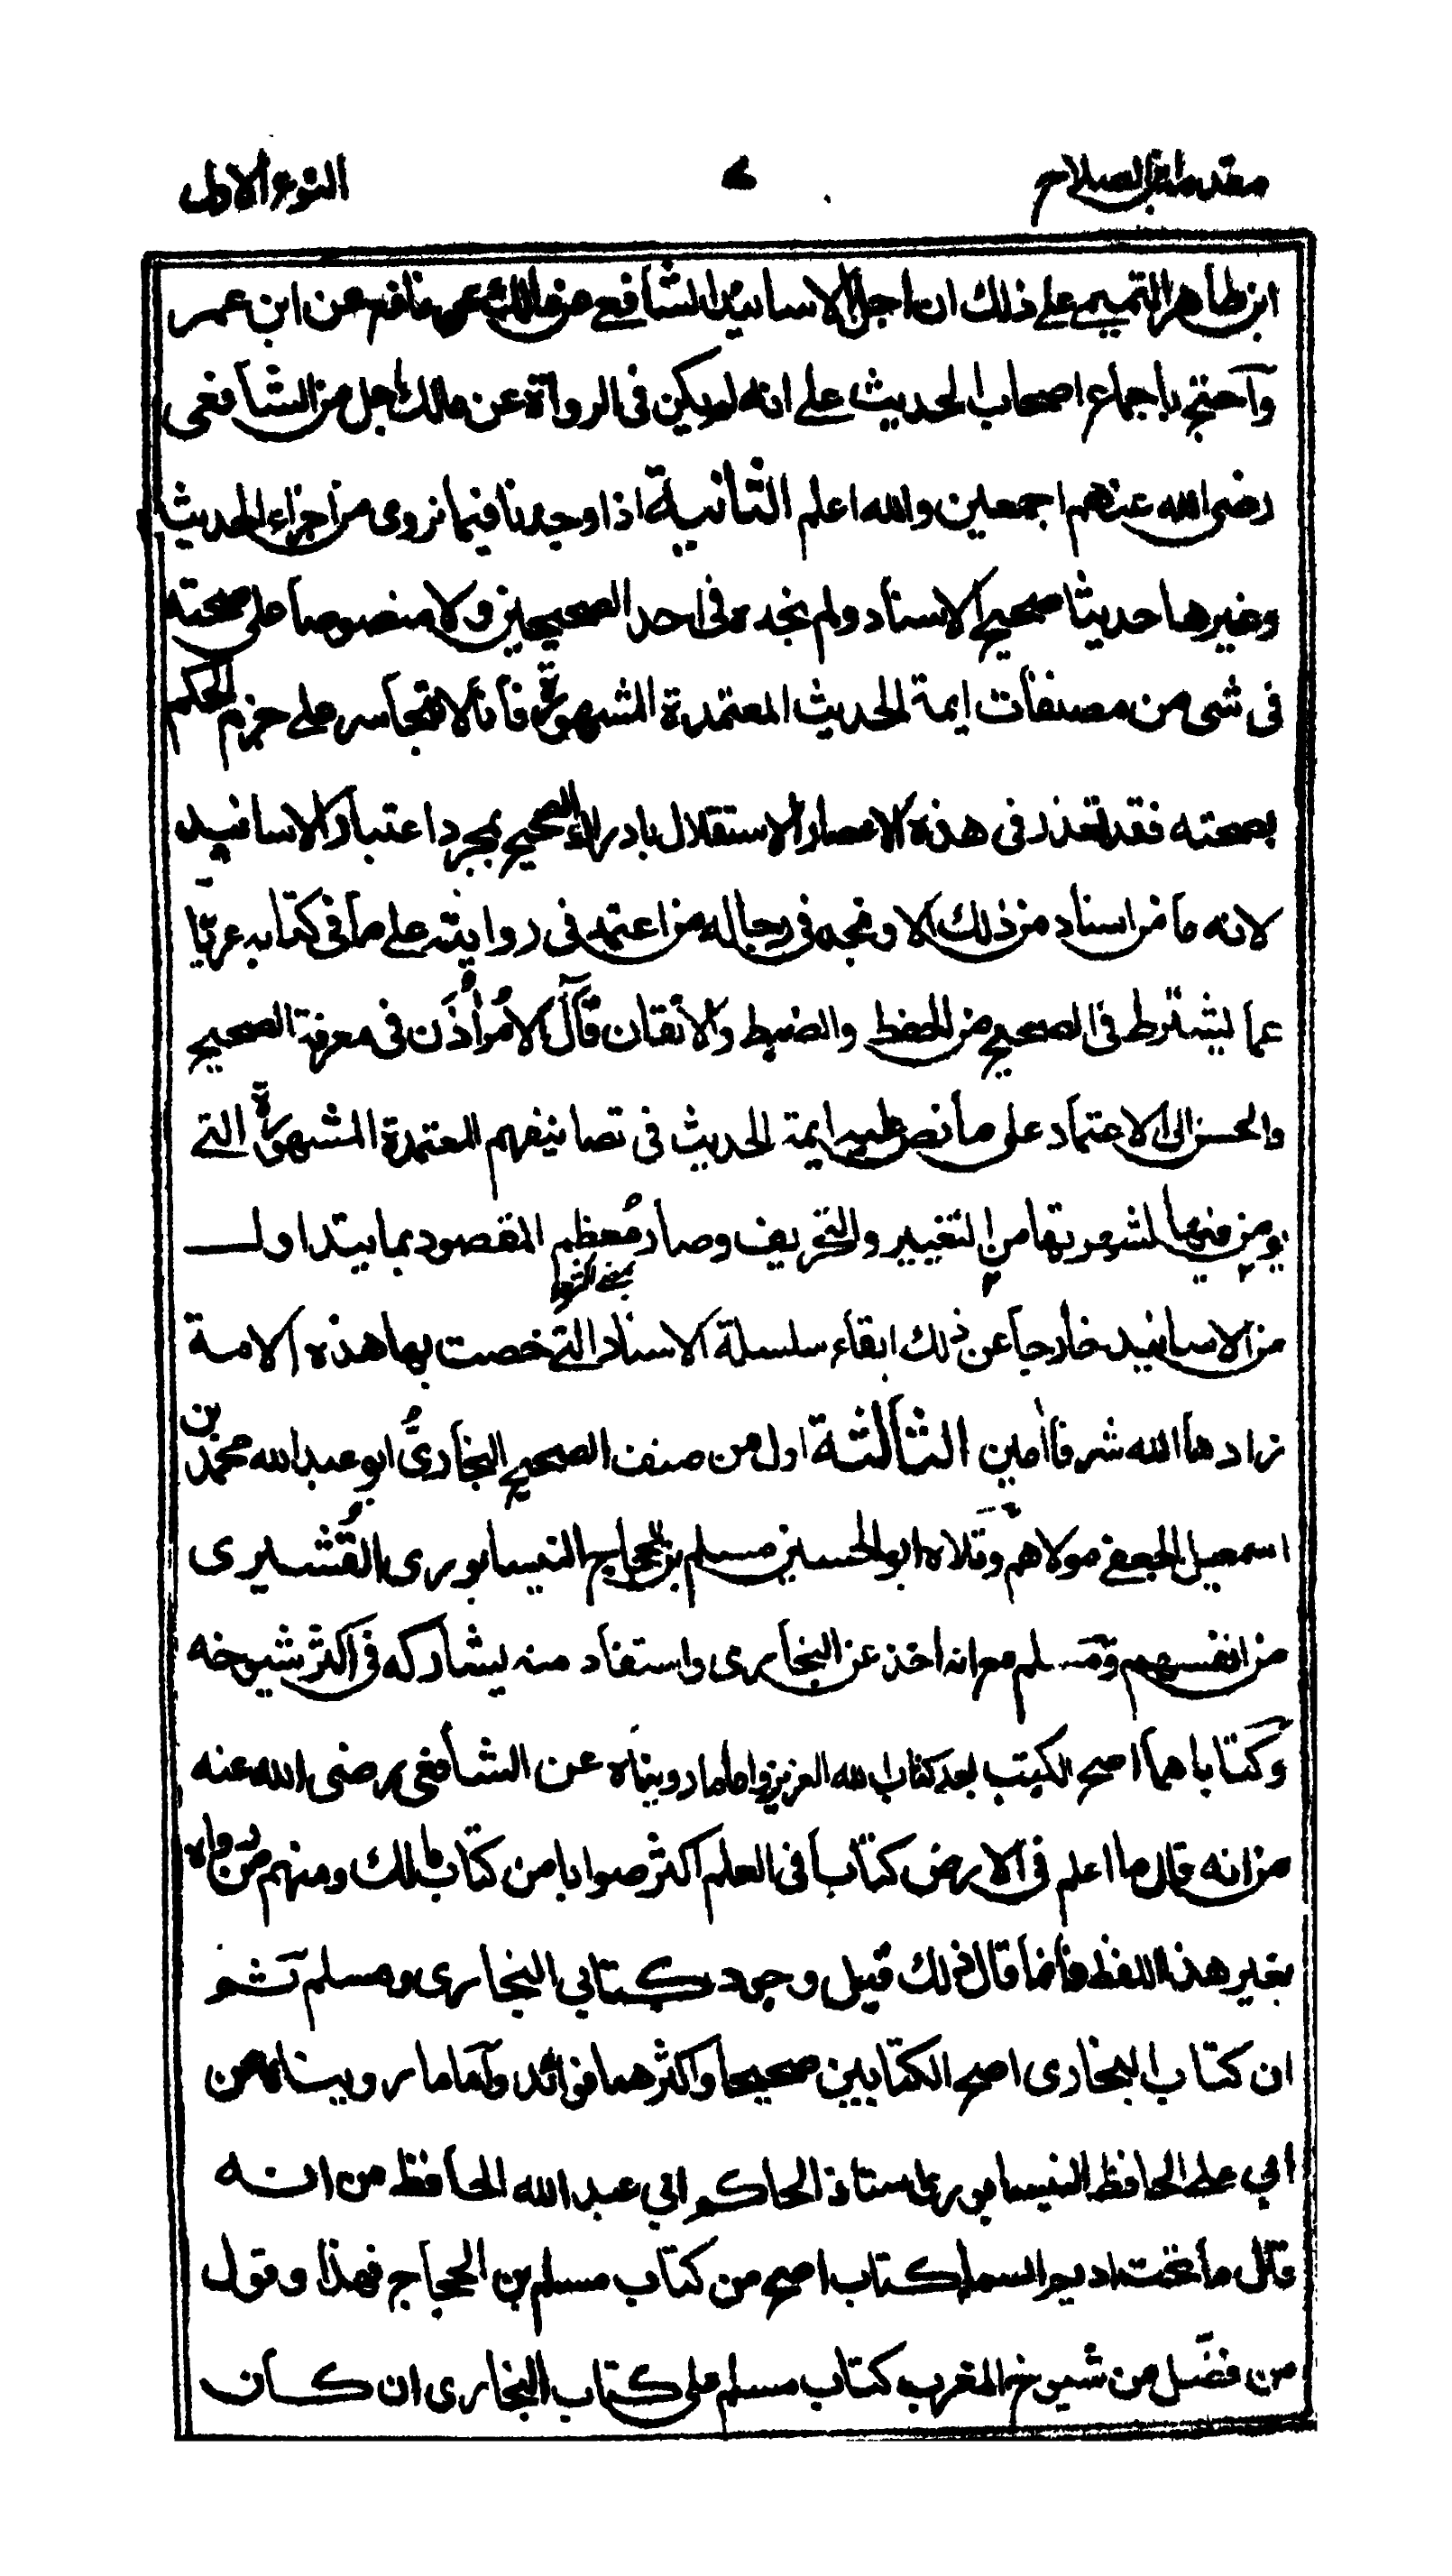 مقدمة ابن الصلاح ٧ النوع الاول
ابن طاهر التميمي على ذلك ان اجل الاسانيد الشافعي عن مالك عن نافع عن ابن عمر
واحتج باجماع اصحاب الحديث على انه لم يكن في الرواة عن مالك اجل من الشافعي
رضي الله عنهم اجمعين والله اعلم الثانية اذا وجدنا فيما نروى من اجزاء الحديث
وغيرها حديثا صحيح الاسناد ولم نجده في احد الصحيحين ولا منصوصا على صحته
في شى من مصنفات ايمة الحديث المعتمدة المشهورة فانا لا نتجاسر على جزم الحكم
بصحته فقد تعذر في هذه الاعصار الاستقلال بادراك الصحيح بمجرد اعتبار الاسانيد
لانه ما من اسناد من ذلك الا ونجد في رجاله من اعتمد في روايته على ما في كتابه عريا
عما يشترط في الصحيح من الحفظ والضبط والاتقان قال الامر اذن في معرفة الصحيح
والحسن الى الاعتماد على ما نص عليه ايمة الحديث في تصانيفهم المعتمدة المشهورة التي
يومن فيها لشهرتها من التغيير والتحريف وصار معظم المقصود بما يتداول
من الاسانيد خارجا عن ذلك ابقاء سلسلة الاسناد التي خصت بها هذه الامة
زادها الله شرفا امين الثالثة اول من صنف الصحيح البخاري ابو عبد الله محمد بن
اسمعيل الجعفي مولاهم وتلاه ابو الحسين مسلم بن الحجاج النيسابوري القشيري
من انفسهم ومسلم مع انه اخذ عن البخاري واستفاد منه يشاركه في اكثر شيوخه
وكتاباهما اصح الكتب بعد كتاب الله العزيز واما ما رويناه عن الشافعي رضى الله عنه
من انه قال ما اعلم في الارض كتابا في العلم اكثر صوابا من كتاب مالك ومنهم من رواه
بغير هذا اللفظ فانما قال ذلك قبل وجود كتابي البخاري ومسلم ثم
ان كتاب البخاري اصح الكتابين صحيحا واكثرهما فوائد واما ما رويناه عن
ابي على الحافظ النيسابوري استاذ الحاكم ابي عبد الله الحافظ من انه
قال ما تحت اديم السماء كتاب اصح من كتاب مسلم بن الحجاج فهذا وقول
من فضل من شيوخ المغرب كتاب مسلم على كتاب البخاري ان كان